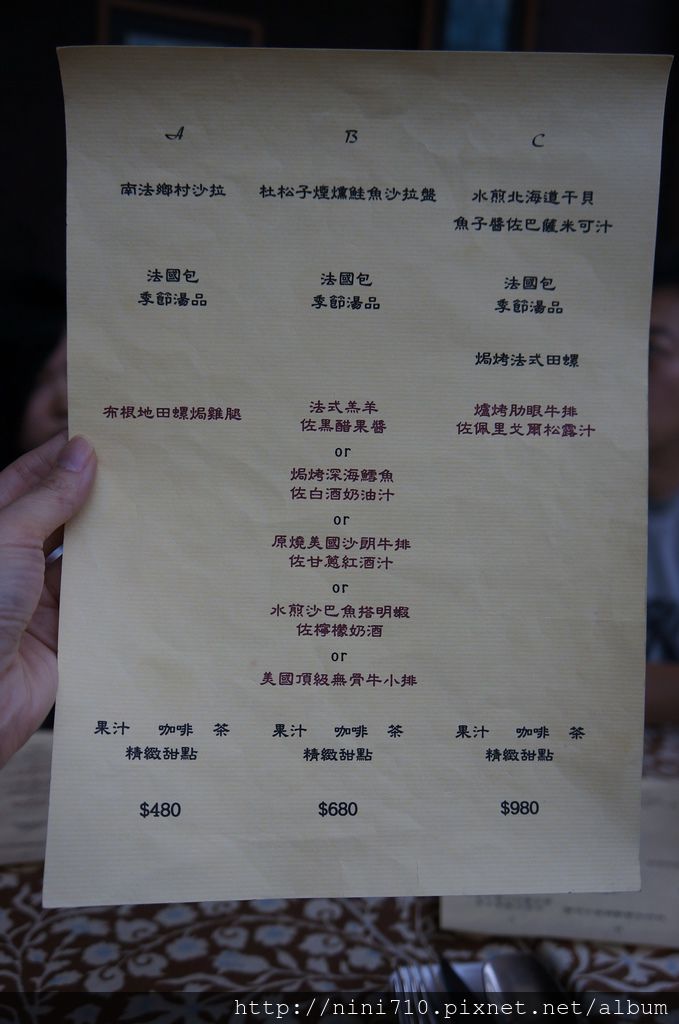 A B C
南法鄉村沙拉 杜松子煙燻鮭魚沙拉盤 水煎北海道干貝
魚子醬佐巴薩米可汁
法國包 法國包 法國包
季節湯品 季節湯品 季節湯品
焗烤法式田螺
布根地田螺焗雞腿 法式羔羊 爐烤肋眼牛排
佐黑醋果醬 佐佩里戈爾松露汁
or
焗烤深海鱈魚
佐白酒奶油汁
or
原燒美國沙朗牛排
佐甘蔥紅酒汁
or
水煎沙巴魚搭明蝦
佐檸檬奶酒
or
美國頂級無骨牛小排
果汁 咖啡 茶 果汁 咖啡 茶 果汁 咖啡 茶
精緻甜點 精緻甜點 精緻甜點
$480 $680 $980
http://nini710.pixnet.net/album